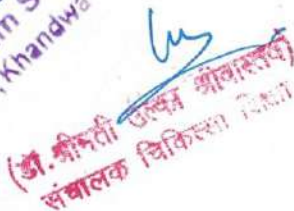 Khandwa
(डॉ. श्रीमती उल्का श्रीवास्तव)
संचालक चिकित्सा शिक्षा